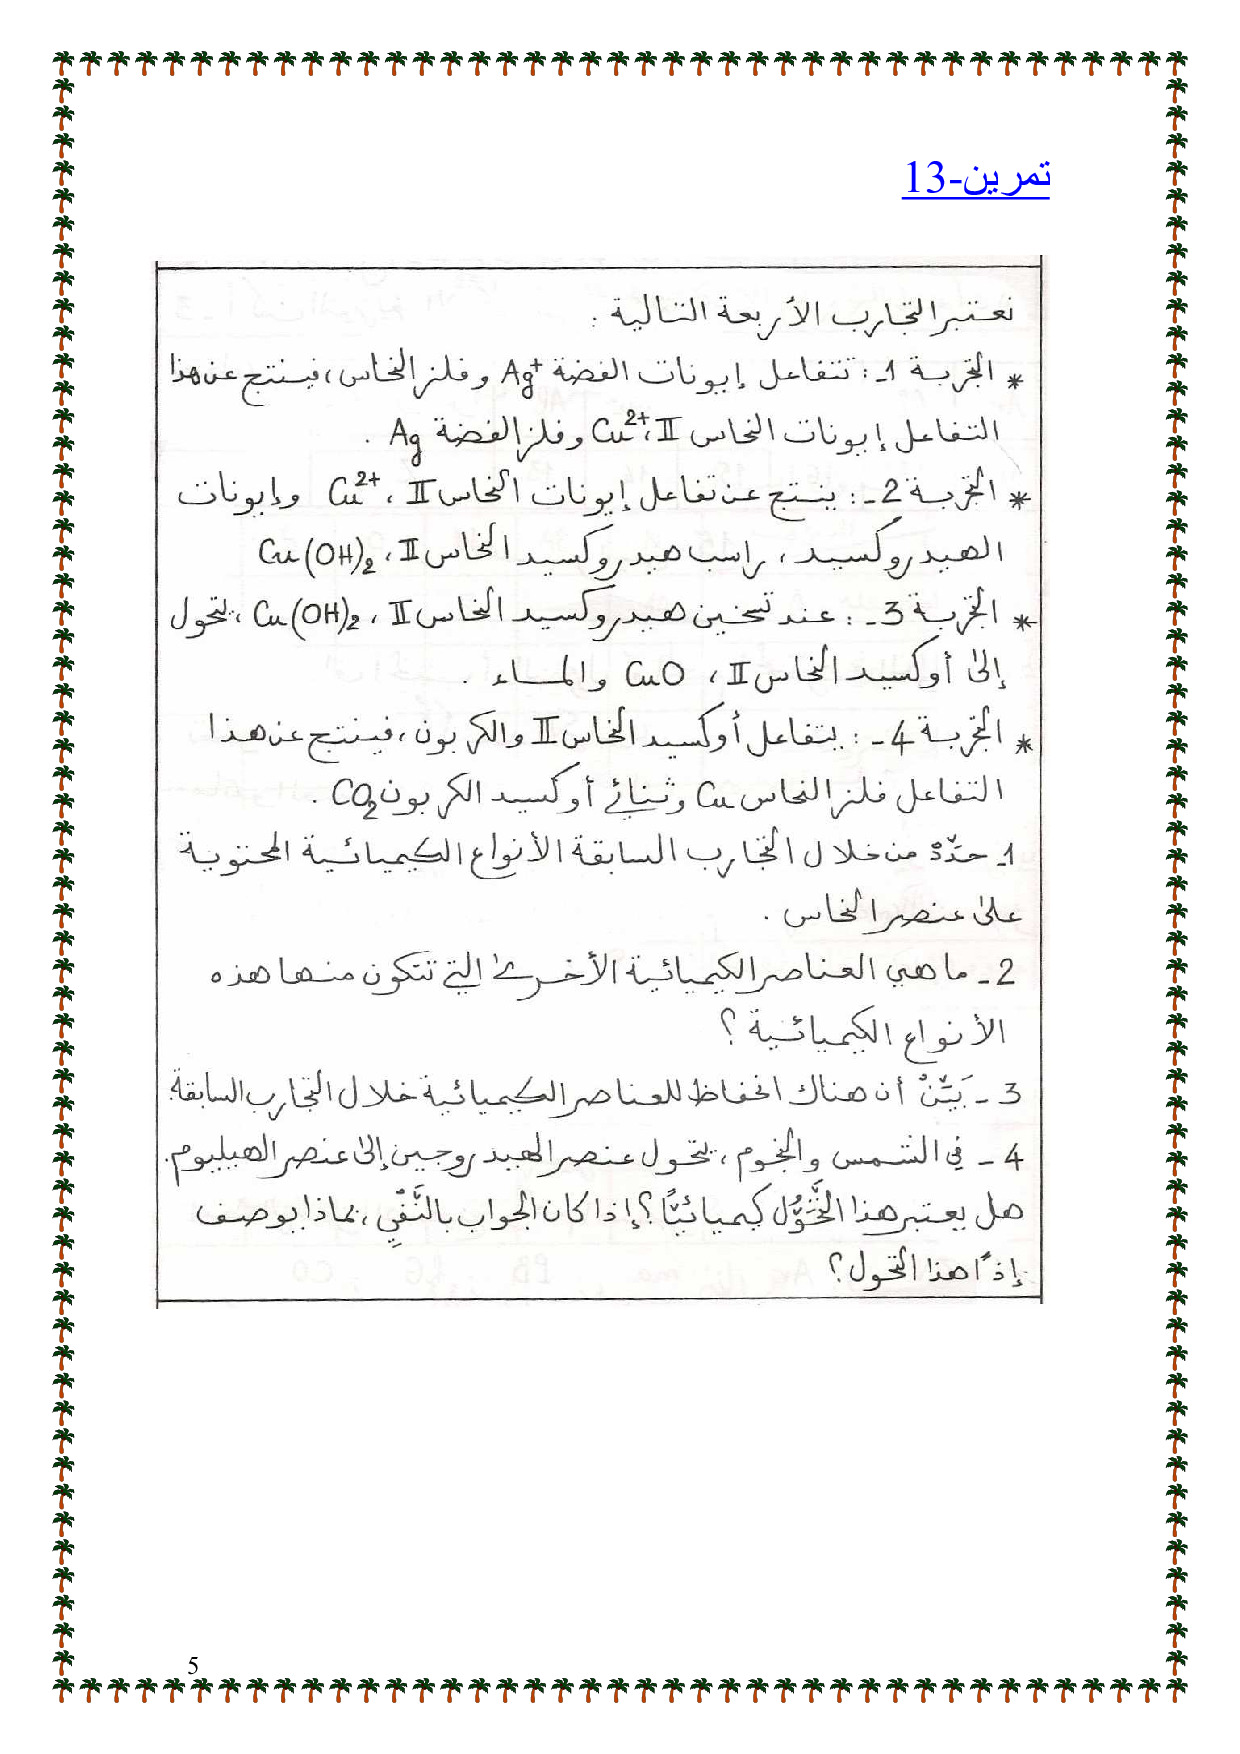 تمرين-13
نعتبر التجارب الأربعة التالية :
* التجربة 1 ـ : تتفاعل إيونات الفضة Ag⁺ وفلز النحاس ، فينتج عن هذا
التفاعل إيونات النحاس II ، Cu²⁺ وفلز الفضة Ag .
* التجربة 2 ـ : ينتج عن تفاعل إيونات النحاس II ، Cu²⁺ وإيونات
الهيدروكسيد ، راسب هيدروكسيد النحاس II ، Cu(OH)₂
* التجربة 3 ـ : عند تسخين هيدروكسيد النحاس II ، Cu(OH)₂ ، يتحول
إلى أوكسيد النحاس II ، CuO والماء .
* التجربة 4 ـ : يتفاعل أوكسيد النحاس II والكربون ، فينتج عن هذا
التفاعل فلز النحاس Cu وثنائي أوكسيد الكربون CO₂ .
1 ـ حدّدْ من خلال التجارب السابقة الأنواع الكيميائية المحتوية
على عنصر النحاس .
2 ـ ما هي العناصر الكيميائية الأخرى التي تتكون منها هذه
الأنواع الكيميائية ؟
3 ـ بَيِّنْ أن هناك انحفاظ للعناصر الكيميائية خلال التجارب السابقة.
4 ـ في الشمس والنجوم ، يتحول عنصر الهيدروجين إلى عنصر الهيليوم .
هل يعتبر هذا التَّحَوُّل كيميائيًّا ؟ إذا كان الجواب بالنَّفْيِ ، بماذا يوصف
إذًا هذا التحول ؟
5